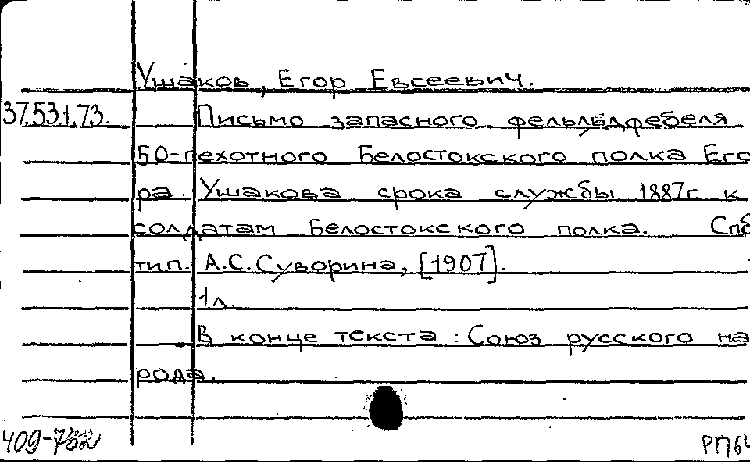 Ушаков, Егор Евсеевич.
37.53.1.73. Письмо запасного фельдфебеля
50-пехотного Белостокского полка Его
ра Ушакова срока службы 1887г. к
солдатам Белостокского полка. Спб
тип. А.С. Суворина, [1907].
1л.
В конце текста: Союз русского на
рода.
РП64